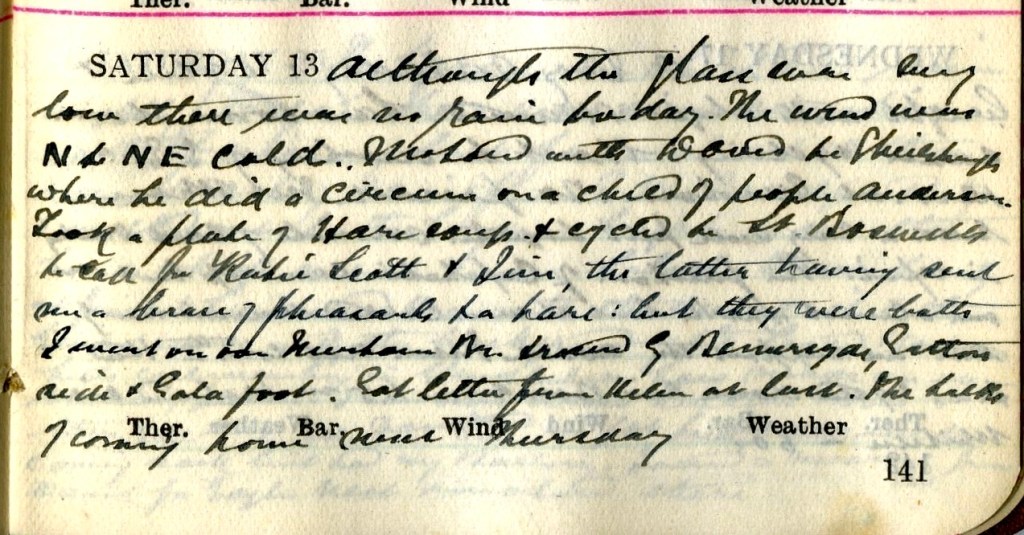 Ther. Bar. Wind Weather
SATURDAY 13 Although the glass was very
low there was no rain to day. The wind was
N to NE cold. Motored with to
where he did a circum on a child of people Anderson.
Took a plate of Hare soup & cycled to St. Boswells
to call for Scott & Jim, the latter having sent
me a brace of pheasants & a hare: but they were both
I went on over Br. & round by Bemersyde,
side & Gala foot. Got letter from Helen at last. She talks
of coming home next Thursday
Ther. Bar. Wind Weather
141